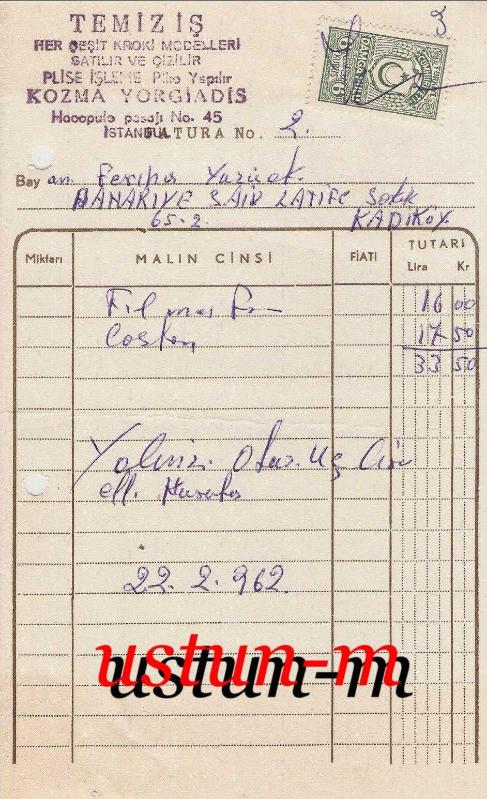 TEMİZ İŞ
HER ÇEŞİT KROKİ MODELLERİ
SATILIR VE ÇİZİLİR
PLİSE İŞLEME Piko Yapılır
KOZMA YORGİADİS
Hacopulo pasajı No. 45
İSTANBUL
FATURA No. 2.
3
Bay an
SAİD LATİFE Sokak
65-2 KADIKÖY.
Miktarı MALIN CİNSİ FİATI TUTARI
Lira Kr
16 00
17 50
33 50
Yalnız Otuz Üç Lira
ell. Kuruştur
22. 2. 962.
ustun-m